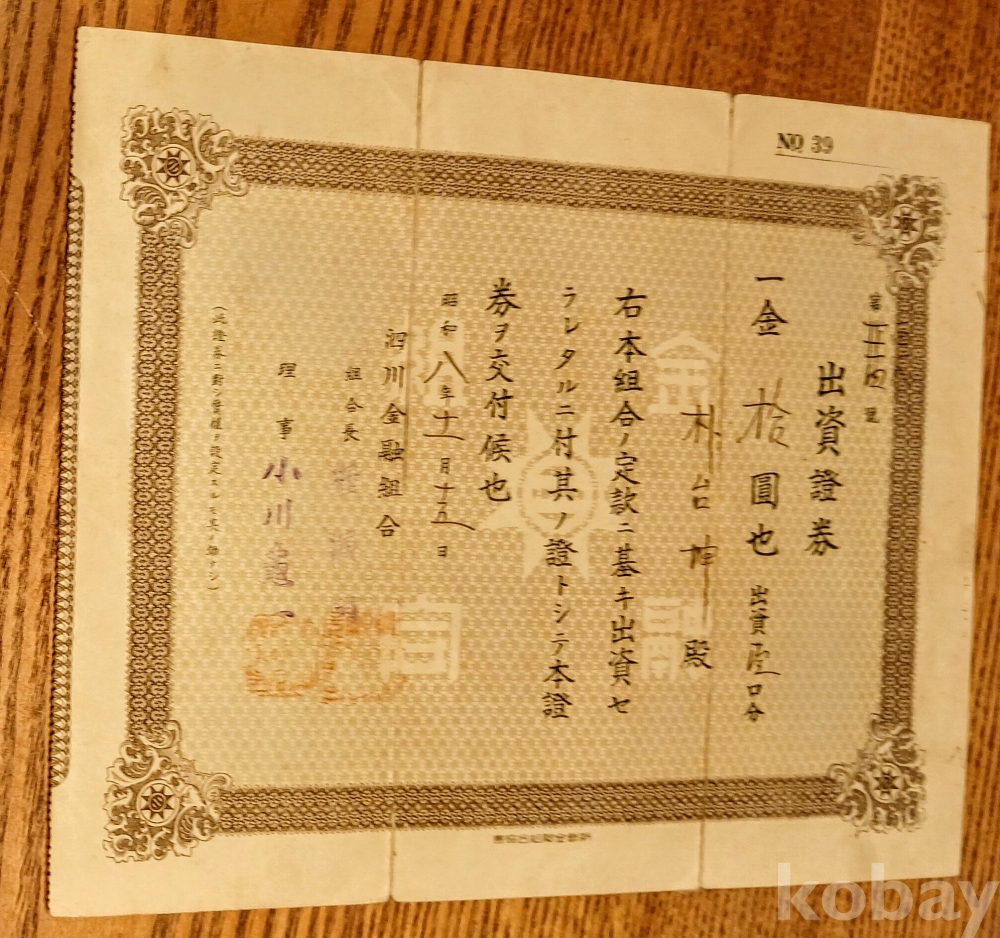 NO 39
第 號
出資證券
一金拾圓也 出資壹口分
朴台坤殿
右本組合ノ定款ニ基キ出資セ
ラレタルニ付其ノ證トシテ本證
券ヲ交付候也
昭和八年十一月十五日
泗川金融組合
組合長
理事 小川 一
(此證券ニ對シ質權ヲ設定スルモ其ノ効ナシ)
金融組合
kobay